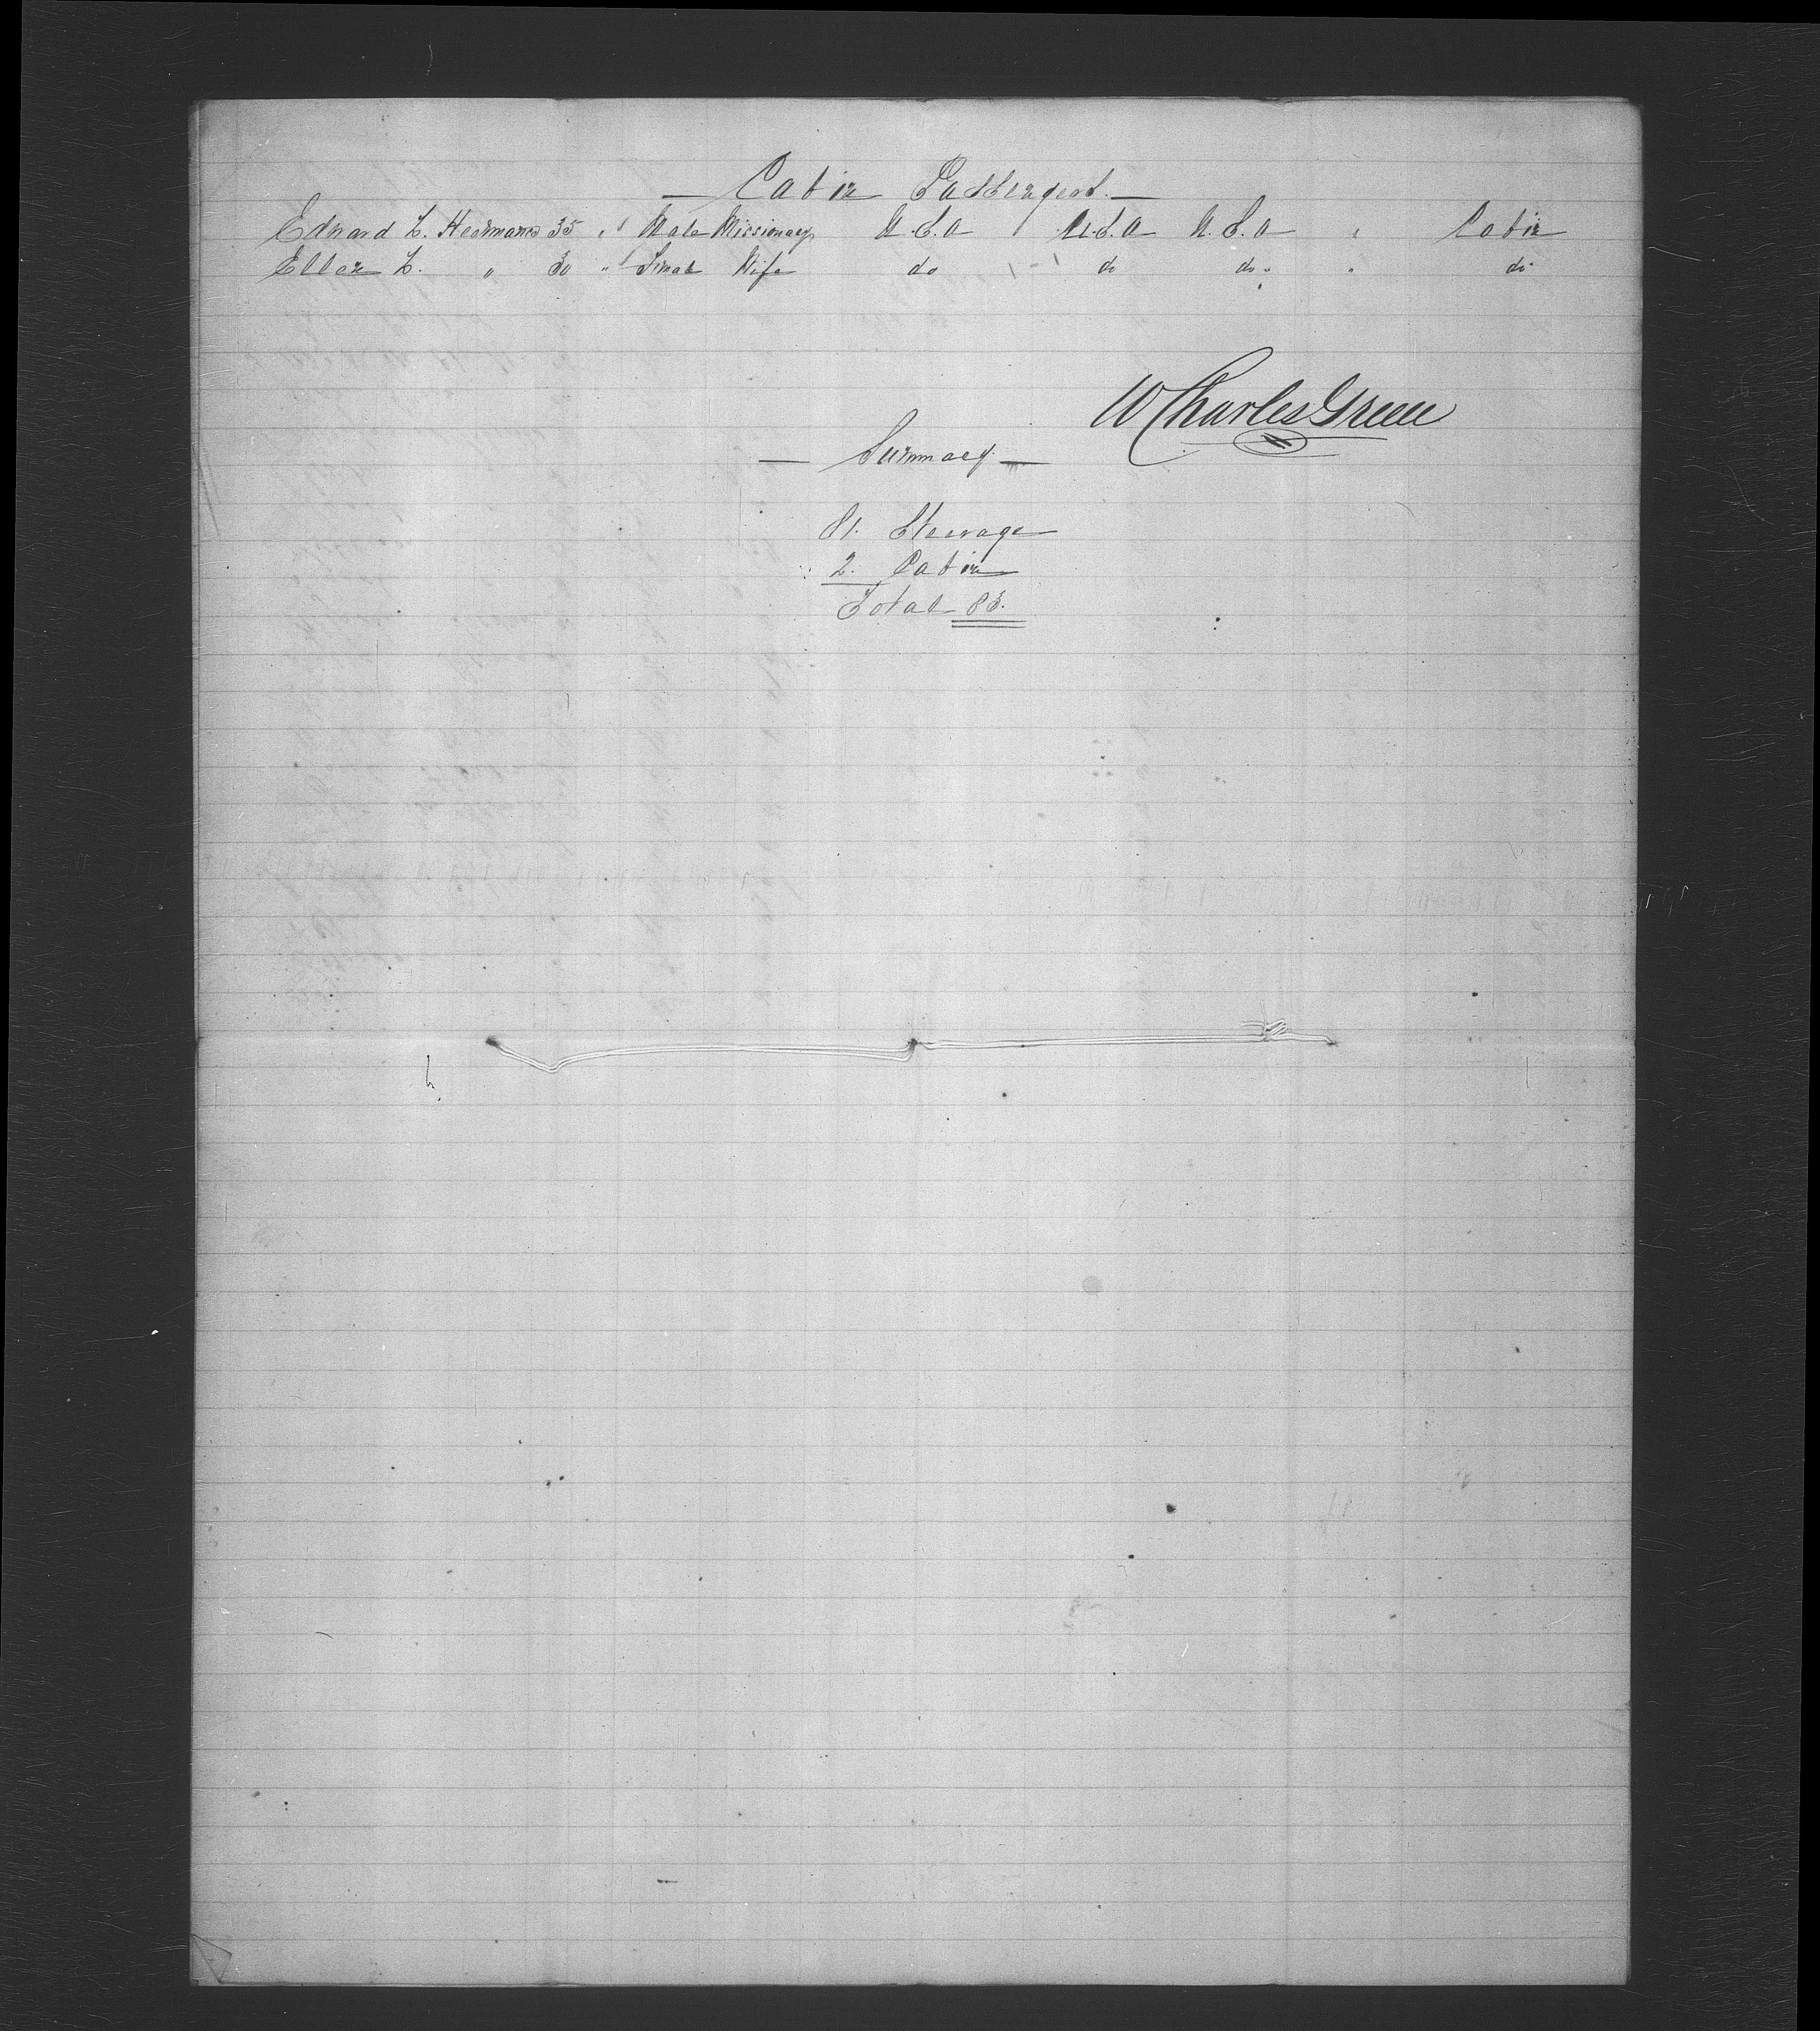 — Cabin Passengers. —
Edward L. Hermann 35 " Male Missionary U.S.A U.S.A U.S.A " Cabin
Ellen L. " 30 " Femal Wife do do do " do
W Charles Green
— Summary. —
81. Steerage
2. Cabin
Total 83.